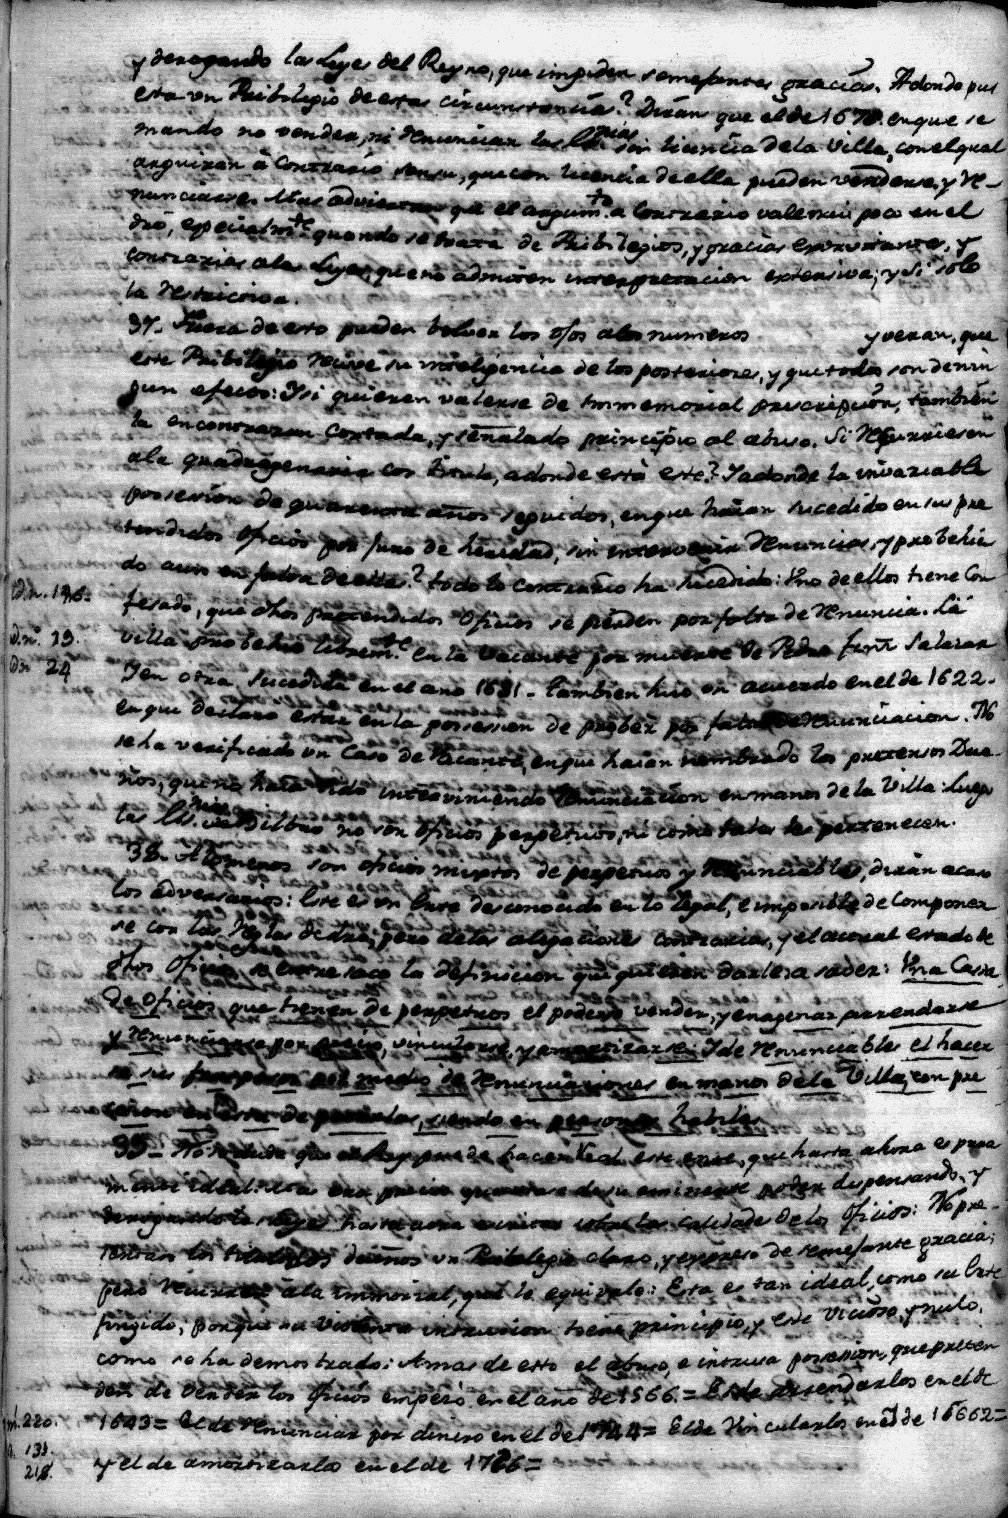 y derogando las Leyes del Reyno, que impiden semejantes gracias. Adonde pues
esta un Pribilegio de estas circunstancias? Diran que el de 1670 en que se
mando no vender, ni renunciar las sin licencia de la Villa, con el qual
arguiran à contrario sensu, que con licencia de ella pueden venderse, y re-
nunciarse. Mas adviertan que el argumto. a contrario vale mui poco en el
dro, especialmte. quando se trata de Pribilegios, y gracias exorvitantes, y
contrarias a las Leyes, que no admiten interpretacion extensiva, y si solo
la restrictiva.
37. Fuera de esto pueden bolver los ojos a los numeros y veran, que
este Pribilegio recive su inteligencia de los posteriores, y que todos son de nin
gun efecto: Y si quieran valerse de Immemorial prescripcion, tambien
la encontraran cortada, y señalado principio al abuso. Si recurriesen
a la quadragenaria con titulo, adonde està este? Y adonde la invariable
possesion de quarenta años seguidos, en que haian sucedido en sus pre
tendidos oficios por juro de heredad, sin intervenir renuncias, y probehien
do aun en falta de ellas? todo lo contrario ha sucedido: Uno de ellos tiene con
fesado, que dhos pretendidos oficios se pierden por falta de renuncia. La
Villa probehio libremte. en la vacante por muerte de Pedro Salazar
Y en otra sucedida en el año 1621. Tambien hizo un acuerdo en el de 1622.
en que declaro estar en la possesion de probeer por falta de renunciacion. No
se ha verificado un caso de vacante, en que haian nombrado los pretensos Due-
ños, que no haia sido interviniendo renunciacion en manos de la Villa: luego
las de Bilbao no son oficios perpetuos, ni como tales les pertenecen.
38. Alomenos son oficios mixtos de perpetuos y renunciables, diran acaso
los adversarios: Este es un Ente desconocido en lo legal, e imposible de componer
se con las reglas de dro, pero de las alegaciones contrarias, y el actual estado de
dhos oficios se entresaca la definicion que quieren darles a saber: Una Casta
de oficios, que tienen de perpetuos el poderse vender, y enagenar arrendarse
y renunciarse por precio, vincularse, y amortizarse: Y de renunciables el hacer
se sus traspasos por medio de renunciaciones en manos de la Villa, con pre
cision en esta de pasarlas, siendo en personas habiles
39. No se duda que el Rey puede hacer real este ente, que hasta ahora es pura
mente ideal: era preciso que usase de su eminente poder dispensando, y
derogando las leyes hasta aora escritas sobre las calidades de los oficios: No pre-
sentan los titulados dueños un Pribilegio claro, y expreso de semejante gracia;
pero recurren à la immorial, que le equivale: Esta es tan ideal, como su Ente
fingido, porque su violenta intrusion tiene principio, y este vicioso, y nulo,
como se ha demostrado: Amas de esto el abuso, e intrusa possesion, que preten
den de vender los oficios empezò en el año de 1566. = El de arrendarlos en el de
1643 = El de renunciar por dinero en el de 1744 = El de vincularlos en el de 16662 =
y el de amortizarlos en el de 1766 =